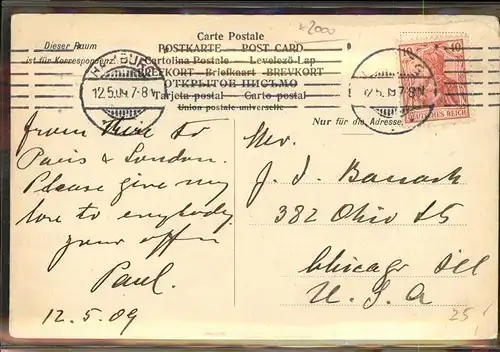 Carte Postale
x2000
Dieser Raum
POSTKARTE — POST CARD
ist für Korrespondenz
Cartolina Postale — Levelező-Lap
BREFKORT — Briefkaart — BREVKORT
ОТКРЫТОЕ ПИСЬМО
Tarjeta postal — Carto postal
Union postale universelle
HAMBURG
12.5.09.7-8N
12.5.09.7-8N
10 10
DEUTSCHES REICH
Nur für die Adresse
from here to
Paris & London.
Please give my
love to everybody
your
Paul.
12.5.09
Mr.
382 Ohio St
Chicago Ill
U. S. A
25